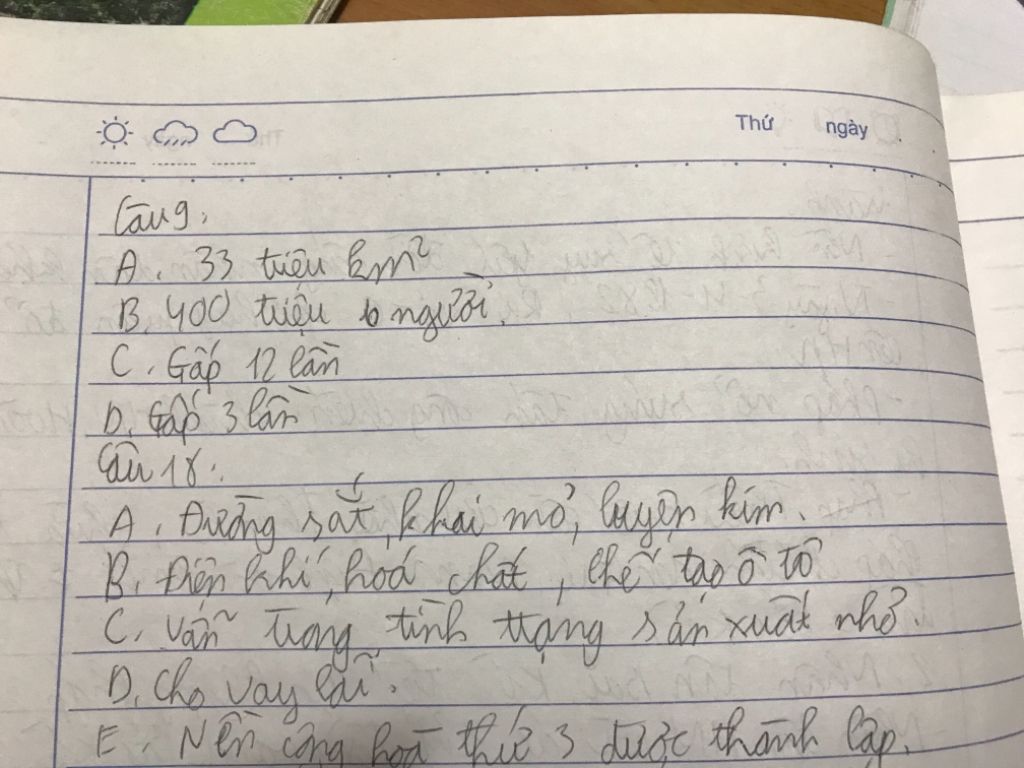 Thứ ngày
Câu 9.
A. 33 triệu km²
B. 400 triệu người.
C. Gấp 12 lần
D. Gấp 3 lần
Câu 18:
A. Đường sắt, khai mỏ, luyện kim.
B. Điện khí, hoá chất, chế tạo ô tô
C. Vẫn trong tình trạng sản xuất nhỏ.
D. Cho vay lãi.
E. Nền cộng hoà thứ 3 được thành lập.